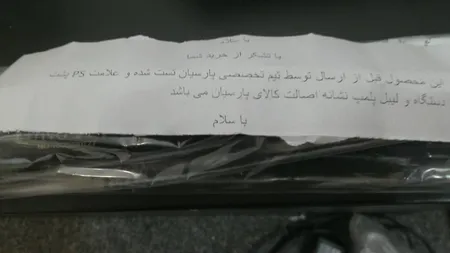 با سلام
با تشکر از خرید شما
این محصول قبل از ارسال توسط تیم تخصصی پارسیان تست شده و علامت PS پشت
دستگاه و لیبل پلمپ نشانه اصالت کالای پارسیان می باشد
با سلام